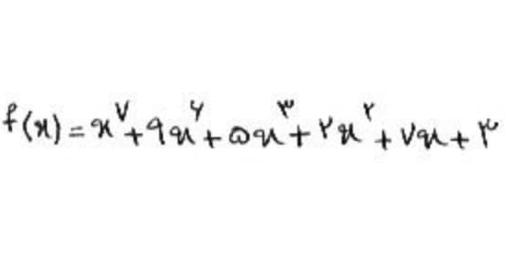 f(x) = x^۷ + ۹x^۶ + ۵x^۳ + ۲x^۲ + ۷x + ۳